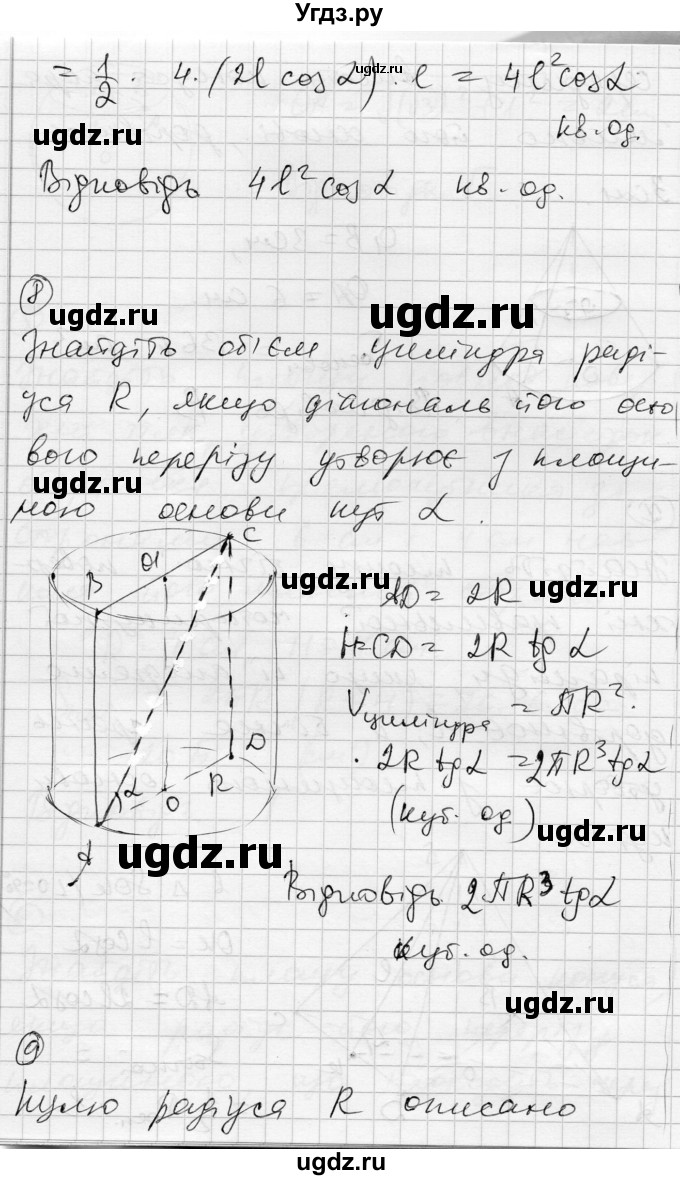 Угдз.ру
= 1/2 · 4 · (2l cos α) · l = 4l² cos α
кв. од.
ugdz.ru
Відповідь 4l² cos α кв. од.
8
ugdz.ru ugdz.ru
Знайдіть об'єм циліндра раді-
уса R, якщо діагональ його осьо
вого перерізу утворює з площи-
ugdz.ru
ною основи кут α.
C
O1
B
ugdz.ru
AD = 2R
H=CD = 2R tg α
Vциліндра = πR² ·
· 2R tg α = 2πR³ tg α
D
R
α
O
(куб. од)
ugdz.ru
A
ugdz.ru
Відповідь 2πR³ tg α
куб. од.
ugdz.ru
9
ugdz.ru
Кулю радіуса R описано
ugdz.ru